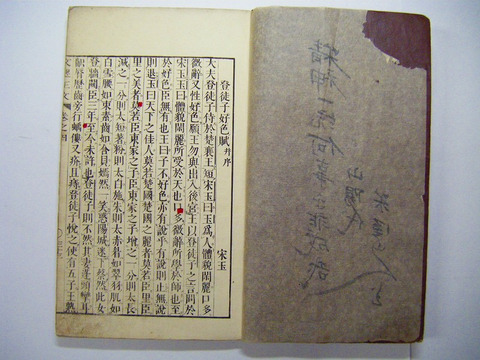 登徒子好色賦 并序
宋玉
大夫登徒子侍於楚襄王短宋玉曰玉爲人體貌閑麗口多
微辭又性好色願王勿與出入後宮王以登徒子之言問於
宋玉玉曰體貌閑麗所受於天也口多微辭所學於師也至
於好色臣無有也王曰子不好色亦有說乎有說則止無說
則退玉曰天下之佳人莫若楚國楚國之麗者莫若臣里臣
里之美者莫若臣東家之子東家之子增之一分則太長
減之一分則太短著粉則太白施朱則太赤眉如翠羽肌如
白雪腰如束素齒如含貝嫣然一笑惑陽城迷下蔡然此女
登牆闚臣三年至今未許也登徒子則不然其妻蓬頭攣耳
齞脣歷齒旁行踽僂又疥且痔登徒子悅之使有五子王孰
文選正文 卷之四